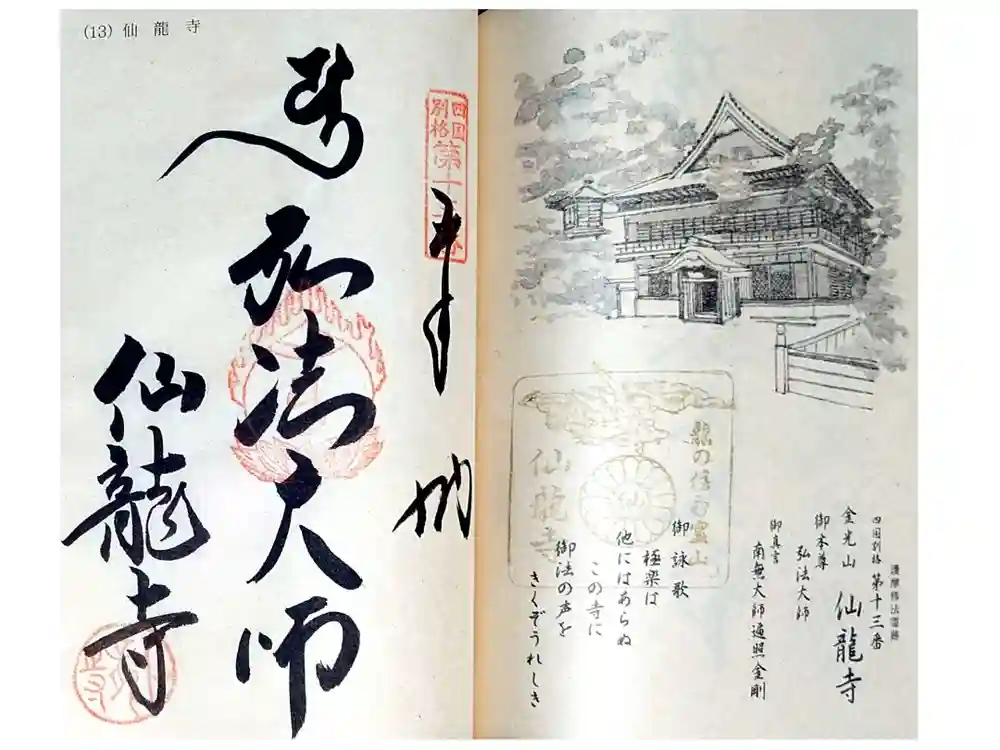 (13) 仙龍寺
四国
別格
第十三番
奉納
弘法大師
仙龍寺
護摩修法霊跡
四国別格 第十三番
金光山 仙龍寺
御本尊
弘法大師
御真言
南無大師遍照金剛
御詠歌
極楽は
他にはあらぬ
この寺に
御法の声を
きくぞうれしき
仙龍寺